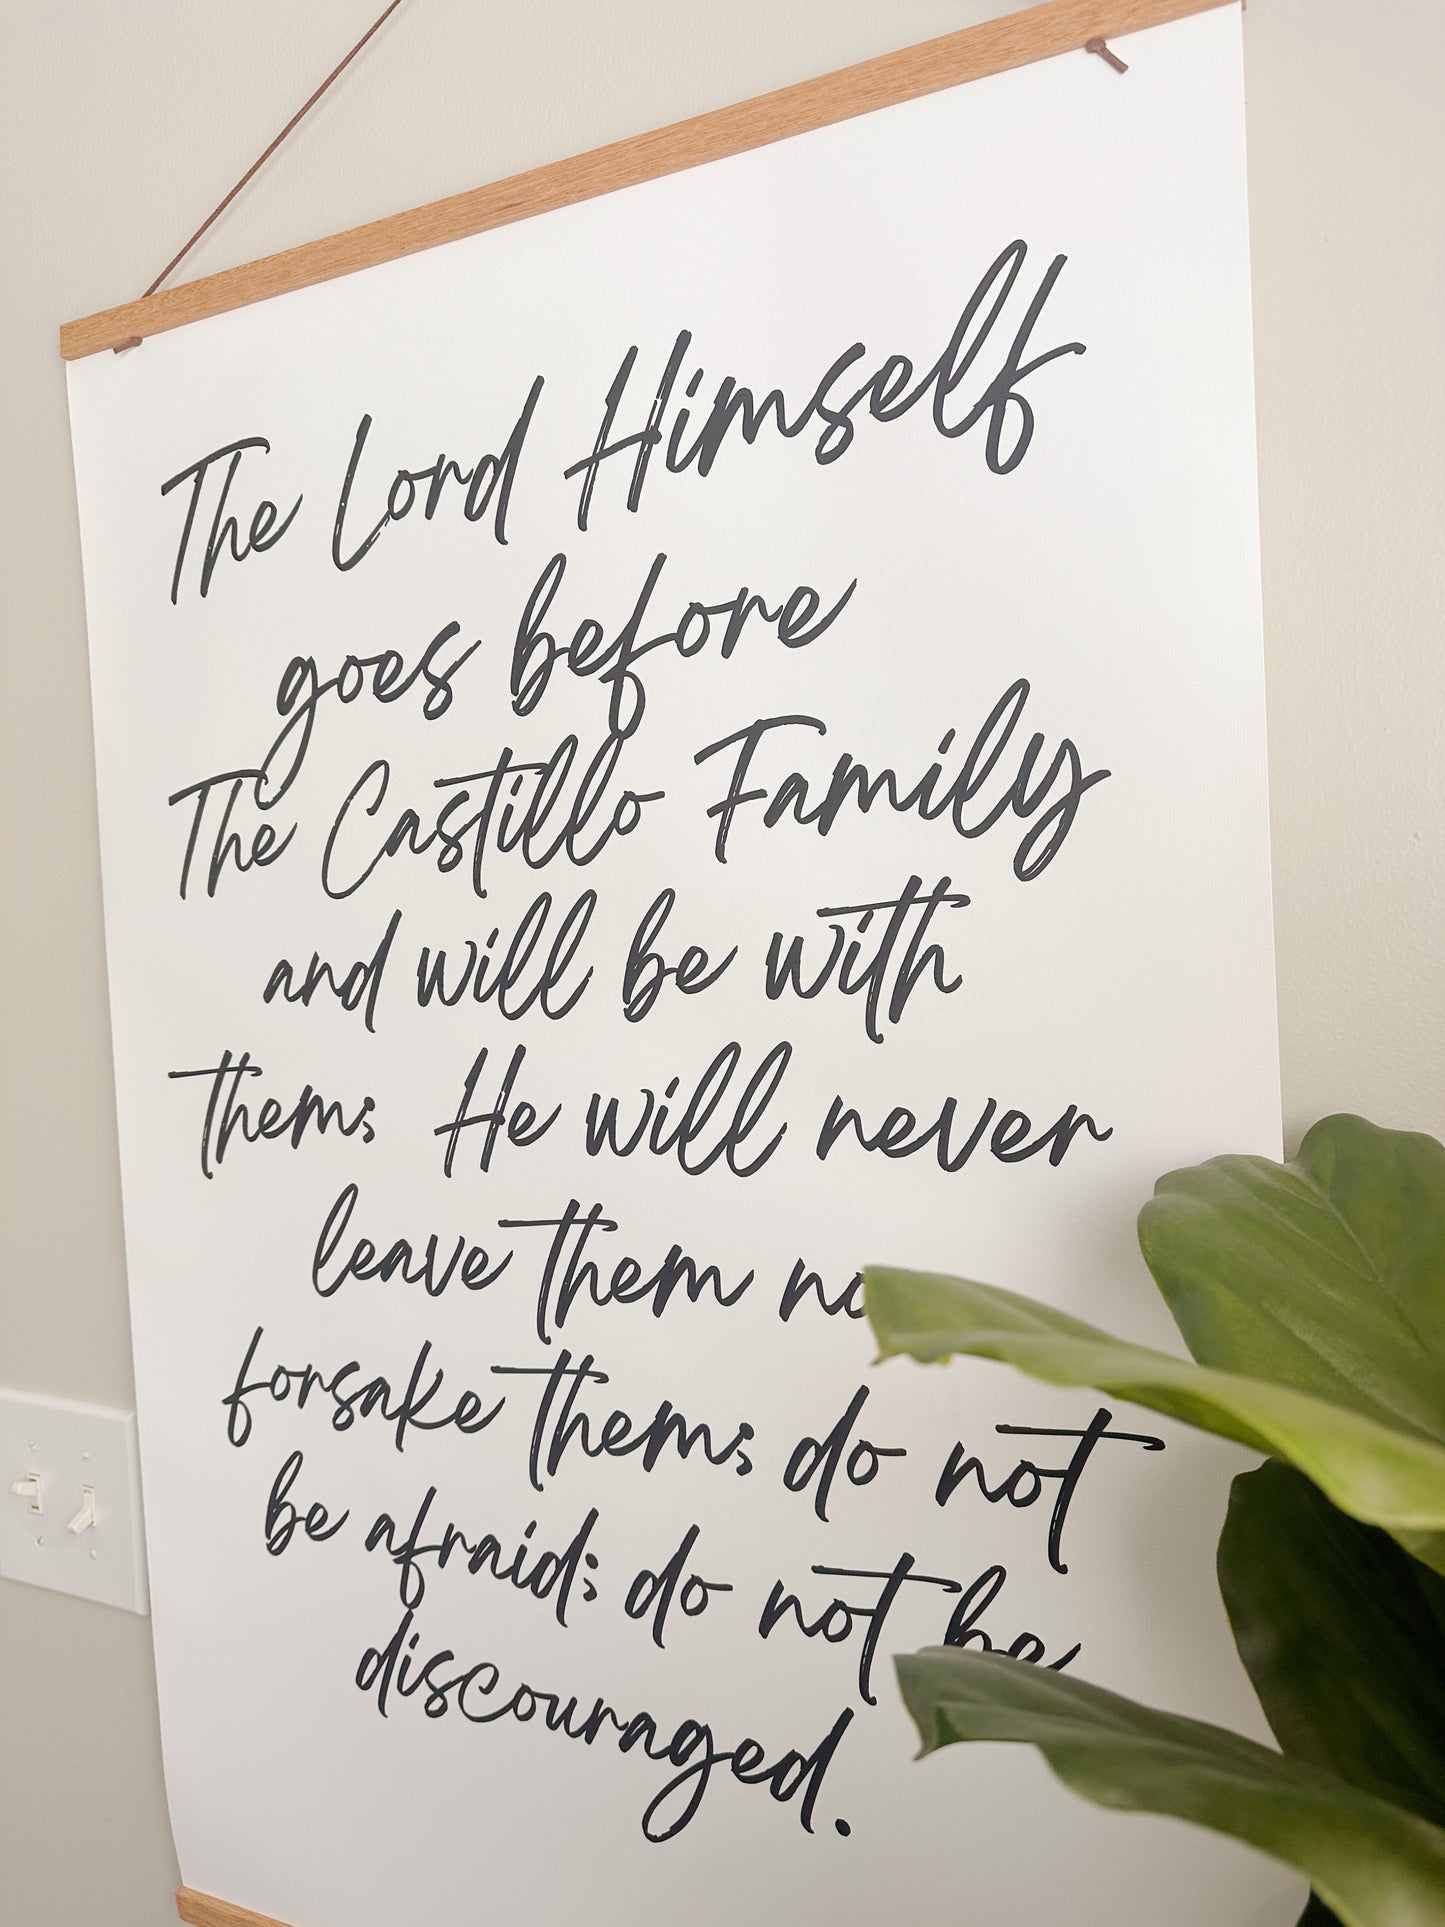 The Lord Himself
goes before
The Castillo Family
and will be with
them; He will never
leave them
forsake them; do not
be afraid; do not be
discouraged.